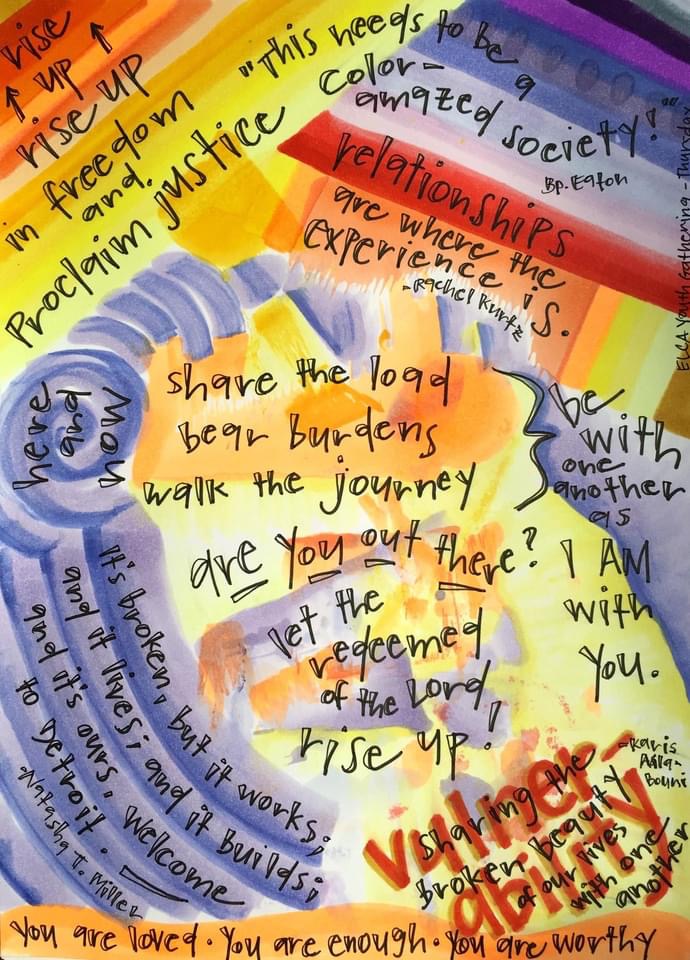 rise
↑ up ↑
rise up
in freedom
and
Proclaim justice
"This needs to be
a
color-
amazed society!"
Bp. Eaton
ELCA Youth Gathering - Thursday
relationships
are where the
experience is.
-Rachel Kurtz
here
and
now
share the load
bear burdens
walk the journey
be
with
one
another
as
I AM
with
you.
are you out there?
Let the
redeemed
of the Lord
rise up!
it's broken, but it works;
and it lives; and it builds;
and it's ours. Welcome
to Detroit.
-Natasha T. Miller
vulner-
ability
sharing the
broken beauty
of our lives
with one
another
-Karis
Bouni
You are loved. You are enough. You are worthy